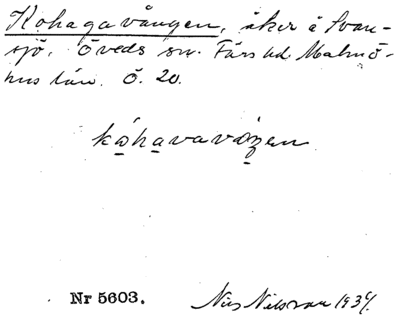 Kohagavången, åker å Svan-
sjö, Öveds sn. Färs hd. Malmö-
hus län. Ö. 20.
kåhavavången
Nr 5603.
Nils Nilsson 1934.